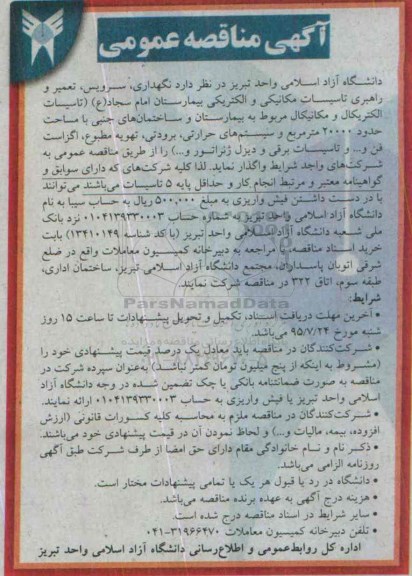 آگهی مناقصه عمومی
دانشگاه آزاد اسلامی واحد تبریز در نظر دارد نگهداری، سرویس، تعمیر و
راهبری تاسیسات مکانیکی و الکتریکی بیمارستان امام سجاد(ع) (تاسیسات
الکتریکال و مکانیکال مربوط به بیمارستان و ساختمان‌های جنبی با مساحت
حدود ۲۰۰۰۰ مترمربع و سیستم‌های حرارتی، برودتی، تهویه مطبوع، اگزاست
فن و... و تاسیسات برقی و دیزل ژنراتور و...) را از طریق مناقصه عمومی به
شرکت‌های واجد شرایط واگذار نماید. لذا کلیه شرکت‌های که دارای سوابق و
گواهینامه معتبر و مرتبط انجام کار و حداقل پایه ۵ تاسیسات می‌باشند می‌توانند
با در دست داشتن فیش واریزی به مبلغ ۵۰۰,۰۰۰ ریال به حساب سیبا به نام
دانشگاه آزاد اسلامی واحد تبریز به شماره حساب ۰۱۰۴۱۳۹۳۳۰۰۰۳ نزد بانک
ملی شعبه دانشگاه آزاد اسلامی واحد تبریز (با کد شناسه ۱۳۴۱۰۱۴۹) بابت
خرید اسناد مناقصه، با مراجعه به دبیرخانه کمیسیون معاملات واقع در ضلع
شرقی اتوبان پاسداران، مجتمع دانشگاه آزاد اسلامی تبریز، ساختمان اداری،
طبقه سوم، اتاق ۳۲۲ در مناقصه شرکت نمایند.
ParsNamadData
شرایط:
• آخرین مهلت دریافت اسناد، تکمیل و تحویل پیشنهادات تا ساعت ۱۵ روز
شنبه مورخ ۹۵/۷/۲۴ می‌باشد.
• شرکت‌کنندگان در مناقصه باید معادل یک درصد قیمت پیشنهادی خود را
(مشروط به اینکه از پنج میلیون تومان کمتر نباشد) به‌عنوان سپرده شرکت در
مناقصه به صورت ضمانتنامه بانکی یا چک تضمین شده در وجه دانشگاه آزاد
اسلامی واحد تبریز یا فیش واریزی به حساب ۰۱۰۴۱۳۹۳۳۰۰۰۳ ارائه نمایند.
• شرکت‌کنندگان در مناقصه ملزم به محاسبه کلیه کسورات قانونی (ارزش
افزوده، بیمه، مالیات و...) و لحاظ نمودن آن در قیمت پیشنهادی خود می‌باشند.
• ذکر نام و نام خانوادگی مقام دارای حق امضا از طرف شرکت طبق آگهی
روزنامه الزامی می‌باشد.
• دانشگاه در رد یا قبول هر یک یا تمامی پیشنهادات مختار است.
• هزینه درج آگهی به عهده برنده مناقصه می‌باشد.
• سایر شرایط در اسناد مناقصه درج شده است.
• تلفن دبیرخانه کمیسیون معاملات ۳۱۹۶۶۴۷۰-۰۴۱
اداره کل روابط‌عمومی و اطلاع‌رسانی دانشگاه آزاد اسلامی واحد تبریز